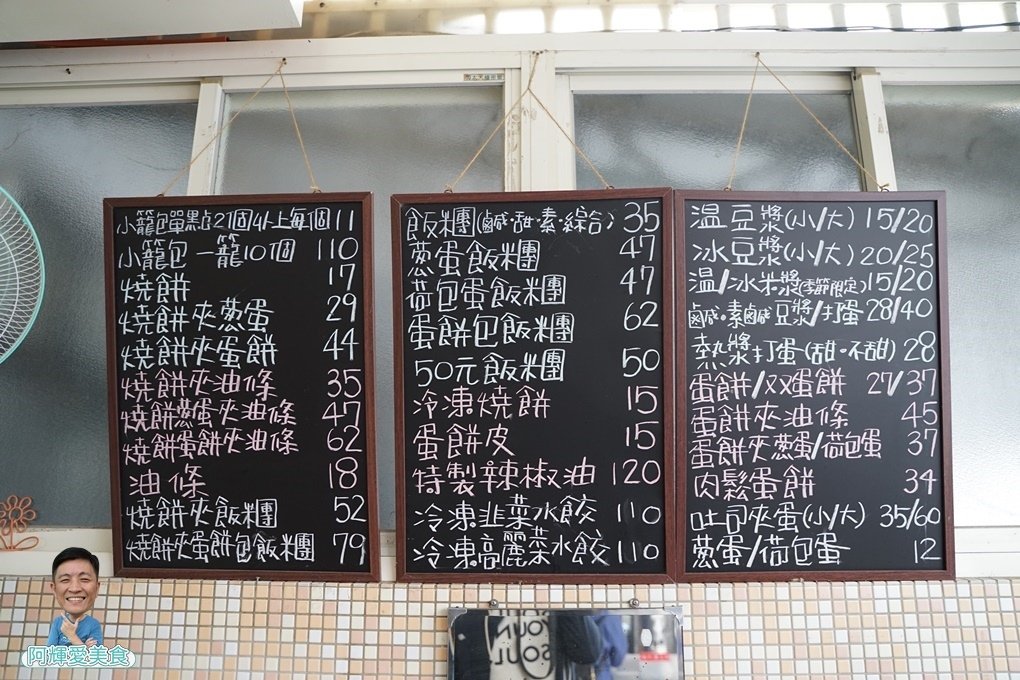 小籠包單點21個以上每個 11
小籠包 一籠10個 110
燒餅 17
燒餅夾蔥蛋 29
燒餅夾蛋餅 44
燒餅夾油條 35
燒餅蔥蛋夾油條 47
燒餅蛋餅夾油條 62
油條 18
燒餅夾飯糰 52
燒餅夾蛋餅包飯糰 79
飯糰(鹹·甜·素·綜合) 35
蔥蛋飯糰 47
荷包蛋飯糰 47
蛋餅包飯糰 62
50元飯糰 50
冷凍燒餅 15
蛋餅皮 15
特製辣椒油 120
冷凍韭菜水餃 110
冷凍高麗菜水餃 110
溫豆漿(小/大) 15/20
冰豆漿(小/大) 20/25
溫/冰米漿(季節限定) 15/20
鹹·素鹹豆漿/打蛋 28/40
熱漿打蛋(甜·不甜) 28
蛋餅/双蛋餅 27/37
蛋餅夾油條 45
蛋餅夾蔥蛋/荷包蛋 37
肉鬆蛋餅 34
吐司夾蛋(小/大) 35/60
蔥蛋/荷包蛋 12
阿輝愛美食